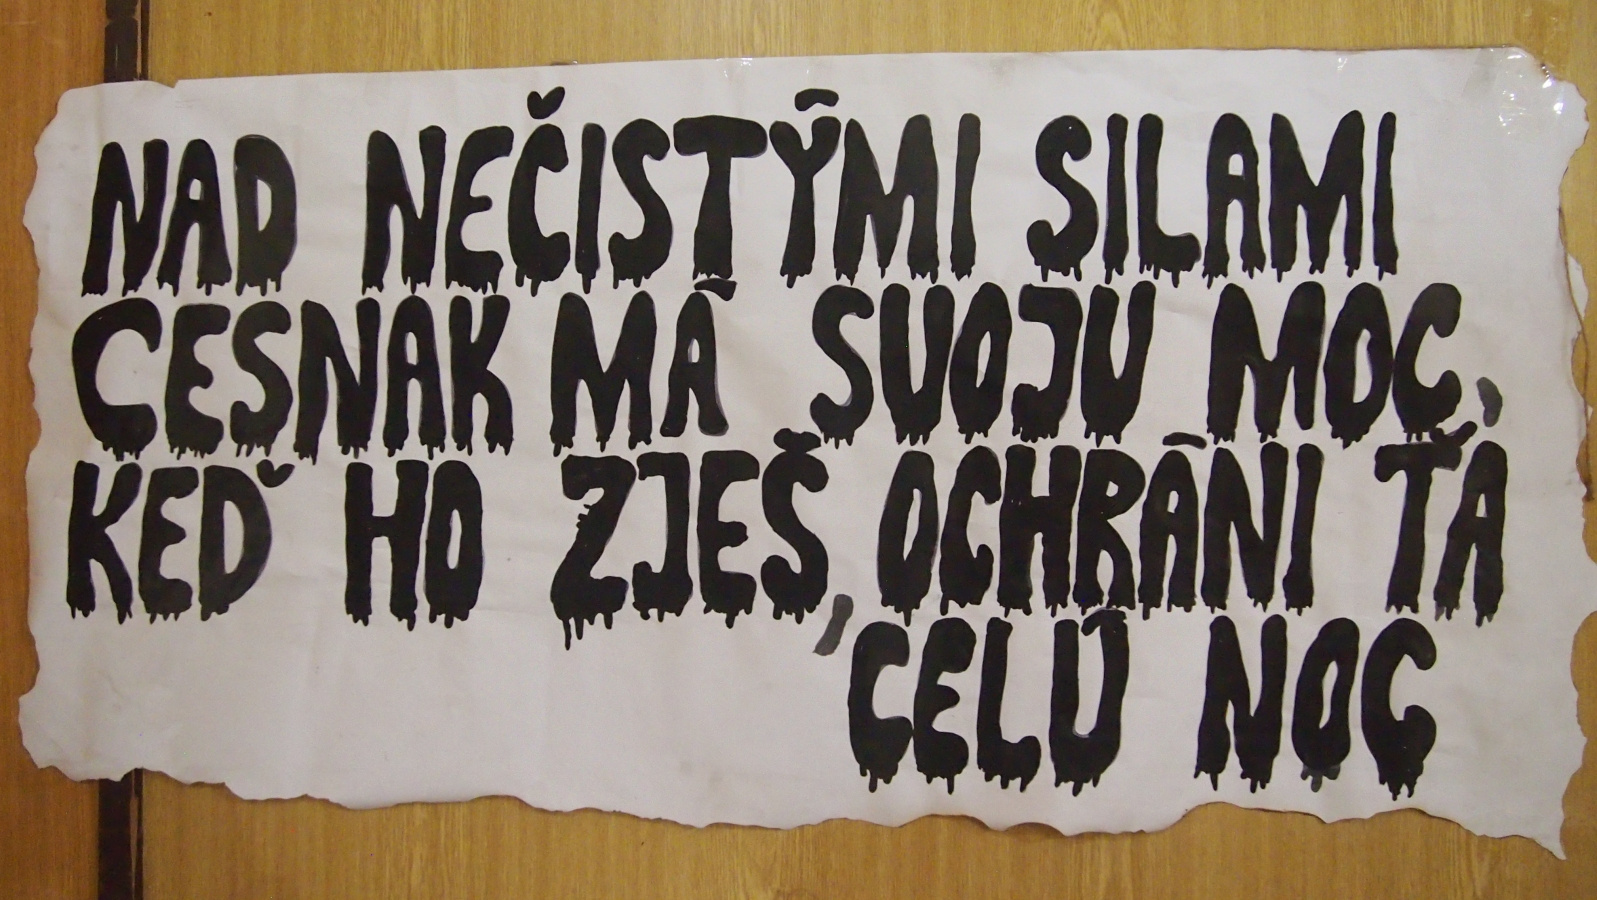 NAD NEČISTÝMI SILAMI
CESNAK MÁ SVOJU MOC,
KEĎ HO ZJEŠ, OCHRÁNI ŤA
CELÚ NOC